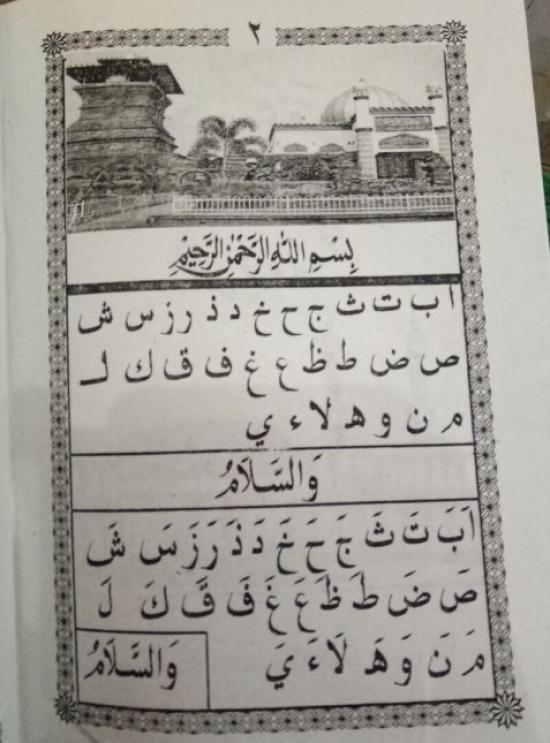 ٢
بِسْمِ اللّٰهِ الرَّحْمٰنِ الرَّحِيْمِ
ا ب ت ث ج ح خ د ذ ر ز س ش
ص ض ط ظ ع غ ف ق ك ل
م ن و ه لا ء ي
وَالسَّلَامُ
اَ بَ تَ ثَ جَ حَ خَ دَ ذَ رَ زَ سَ شَ
صَ ضَ طَ ظَ عَ غَ فَ قَ كَ لَ
مَ نَ وَ هَ لَا ءَ يَ
وَالسَّلَامُ